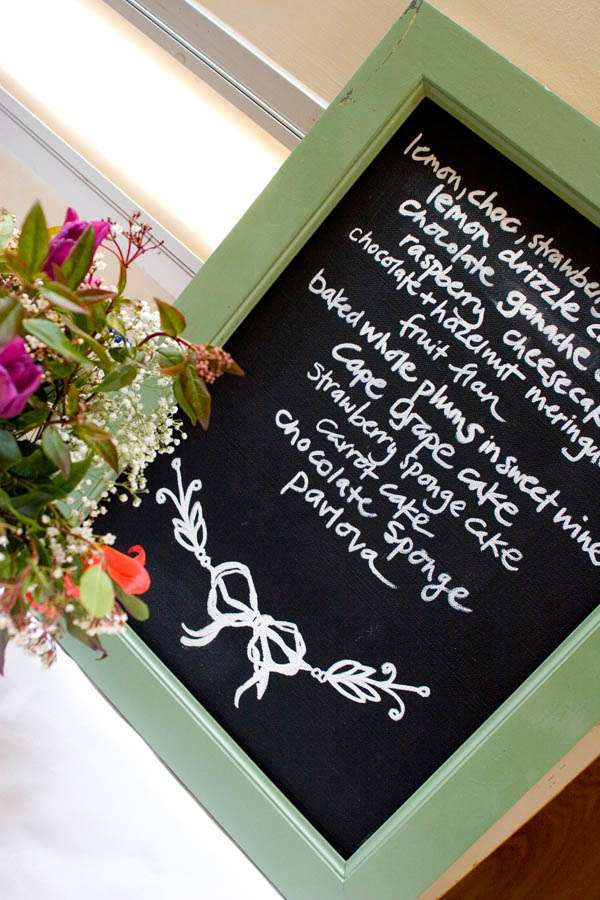 lemon, choc, strawberry
lemon drizzle
chocolate ganache
raspberry cheesecake
chocolate + hazelnut meringue
fruit flan
baked whole plums in sweet wine
Cape grape cake
strawberry sponge cake
carrot cake
chocolate sponge
pavlova